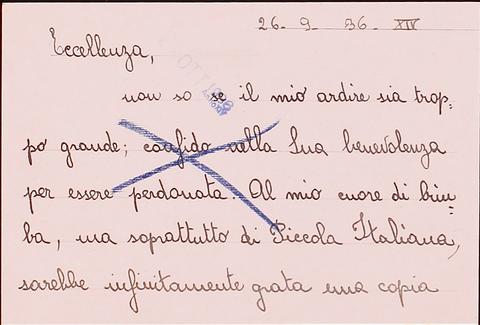 26-9-36. XIV
Eccellenza,
OTT 1936
non so se il mio ardire sia trop=
po grande; confido nella Sua benevolenza
per essere perdonata. Al mio cuore di bim=
ba, ma soprattutto di Piccola Italiana,
sarebbe infinitamente grata una copia